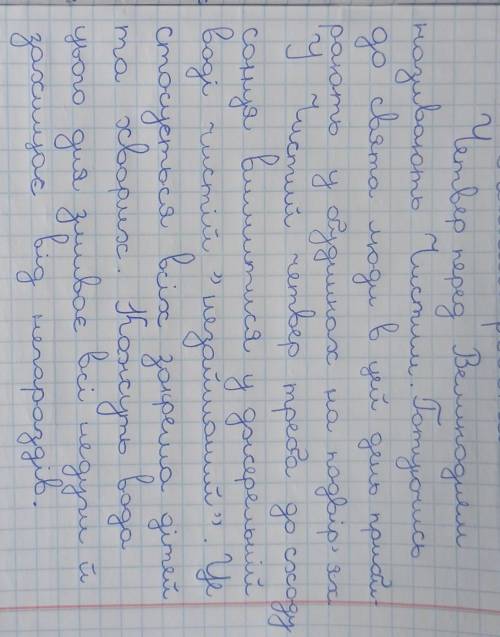 Четвер перед Великоднем
називають Чистим. Готуючись
до свята люди в цей день приби-
рають у будинках на подвір'ях
У Чистий четвер треба до сходу
сонця вимитися у джерельній
воді чистій „незайманій". Це
стосується всіх зокрема дітей
та хворих. Кажуть вода
цього дня змиває всі недуги й
захищає від негараздів.